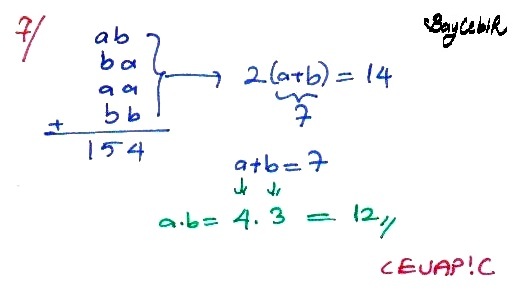 7/
BayCebiR
ab
ba
aa
+ bb
154
2(a+b) = 14
7
a+b=7
a.b= 4. 3 = 12,,
CEVAP!C